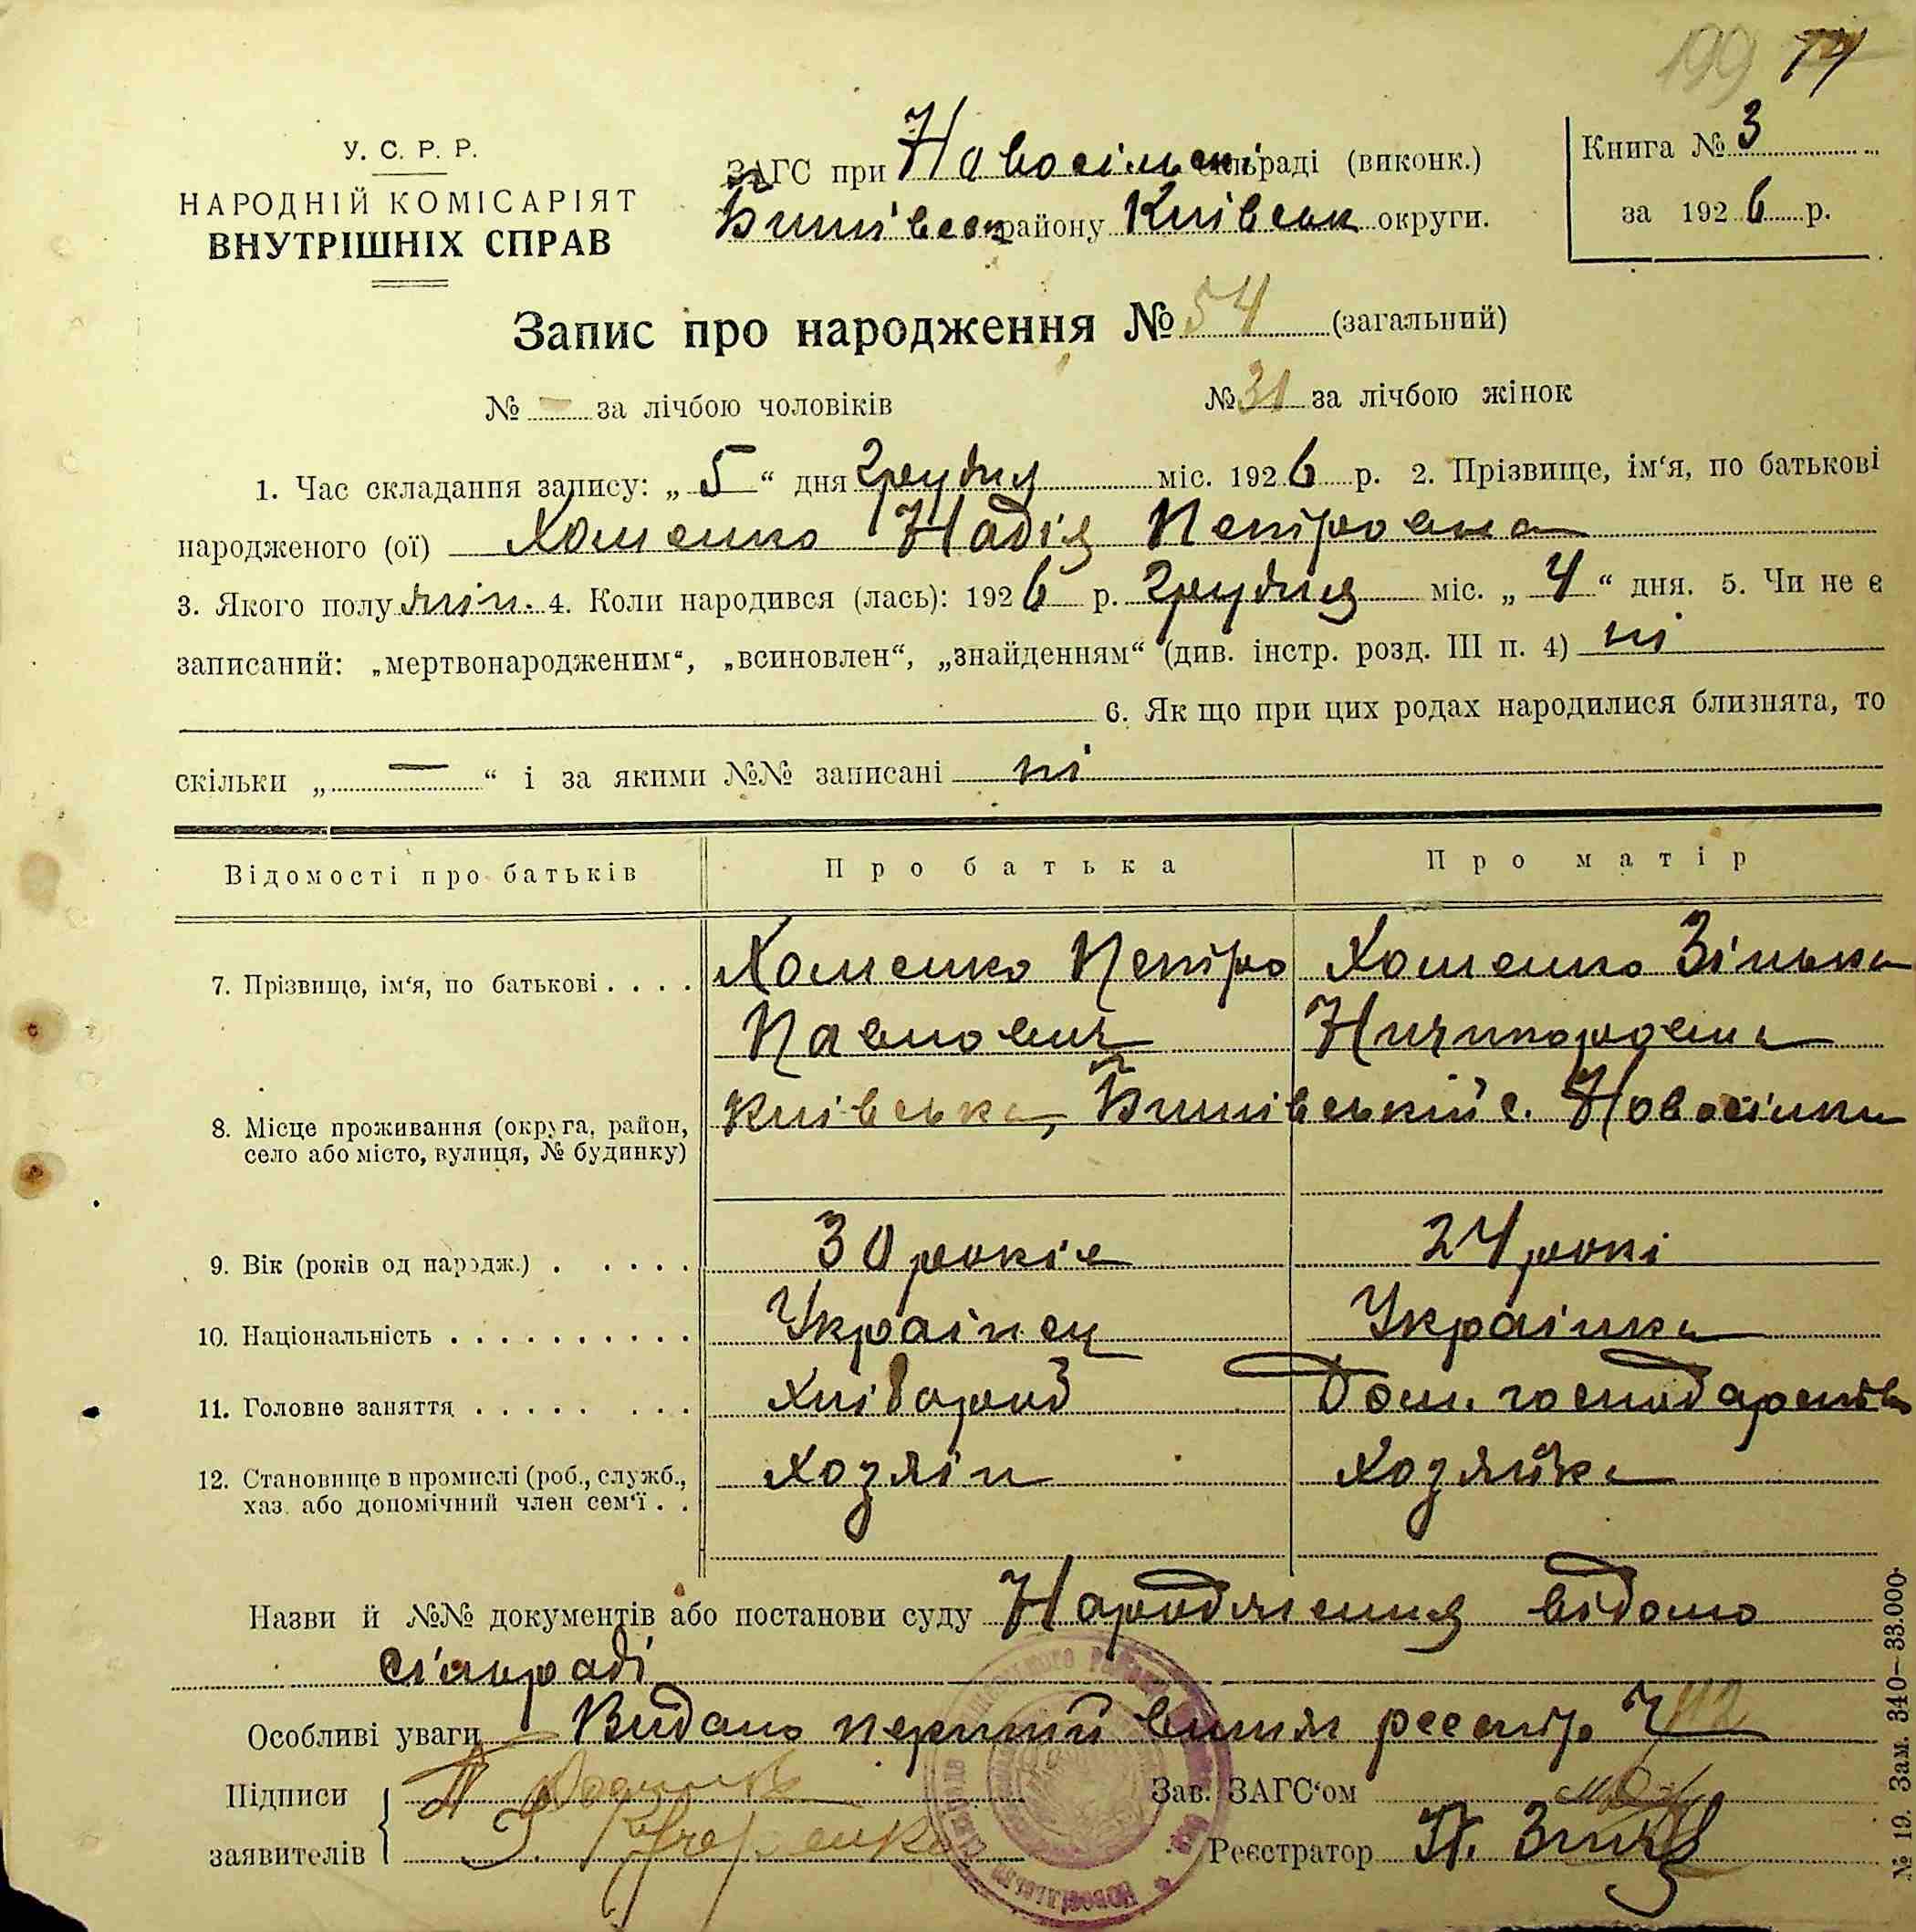 199 74
У. С. Р. Р.
НАРОДНІЙ КОМІСАРІЯТ
ВНУТРІШНІХ СПРАВ
ЗАГС при Новосільській раді (виконк.)
Бишівськ району Київськ округи.
Книга № 3
за 1926 р.
Запис про народження № 54 (загальний)
№ - за лічбою чоловіків № 31 за лічбою жінок
1. Час складання запису: „5“ дня Грудня міс. 1926 р. 2. Прізвище, ім‘я, по батькові
народженого (ої) Хоменко Надія Петровна
3. Якого полу жін. 4. Коли народився (лась): 1926 р. Грудня міс. „4“ дня. 5. Чи не є
записаний: „мертвонародженим“, „всиновлен“, „знайденням“ (див. інстр. розд. III п. 4) ні
6. Як що при цих родах народилися близнята, то
скільки „—“ і за якими №№ записані ні
Відомості про батьків Про батька Про матір
7. Прізвище, ім‘я, по батькові . . . . Хоменко Петро Хоменко Зінька
Павлович Ничипоровна
8. Місце проживання (округа, район, Київська, Бишівський с. Новосілки
село або місто, вулиця, № будинку)
9. Вік (років од народж.) . . . . . 30 років 24 рокі
10. Національність . . . . . . . . . . Українец Українка
11. Головне заняття . . . . . . . . Хлібороб Дом. господарство
12. Становище в промислі (роб., служб., Хозяін Хозяйка
хаз. або допомічний член сем‘ї . .
Назви й №№ документів або постанови суду Народження відомо
сільраді
Особливі уваги Видано перший витяг реестр
Підписи Зав. ЗАГС‘ом
заявителів Реєстратор
№ 19. Зам. 340—33.000.